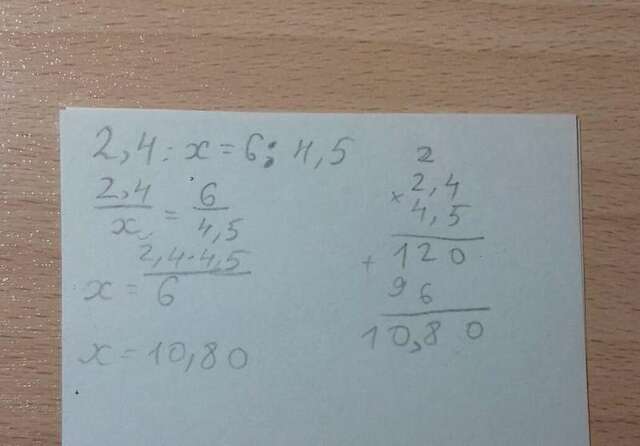 2,4 : x = 6 : 4,5
2,4/x = 6/4,5
x = 2,4·4,5/6
x = 10,80
2
× 2,4
4,5
+ 120
96
10,80